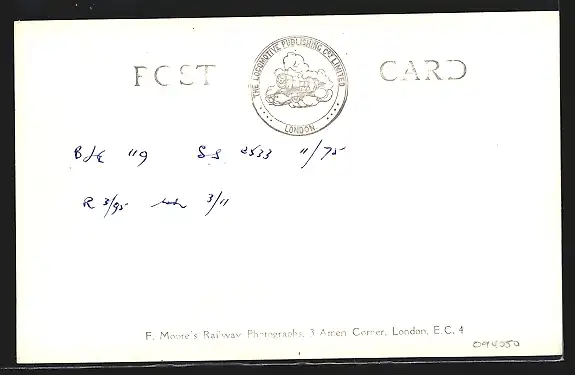 POST CARD
THE LOCOMOTIVE PUBLISHING COY LIMITED
LONDON
119 SS 2533 11/75
R 3/95 3/11
F. Moore's Railway Photographs, 3 Amen Corner, London, E.C. 4
094050